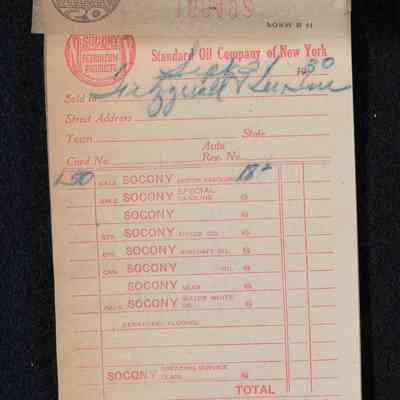 FORM B 11
SOCONY
PETROLEUM
PRODUCTS
Standard Oil Company of New York
Sept 21 1930
Sold to
Street Address
Town State
Card No. Auto Reg. No.
150 GALS. SOCONY MOTOR GASOLINE @ 18 2
GALS. SOCONY SPECIAL GASOLINE @
SOCONY @
QTS. SOCONY MOTOR OIL @
QTS. SOCONY AIRCRAFT OIL @
CAN SOCONY OIL @
SOCONY GEAR @
GALS. SOCONY WATER WHITE OIL @
DENATURED ALCOHOL
SOCONY GREASING SERVICE CLASS @
TOTAL